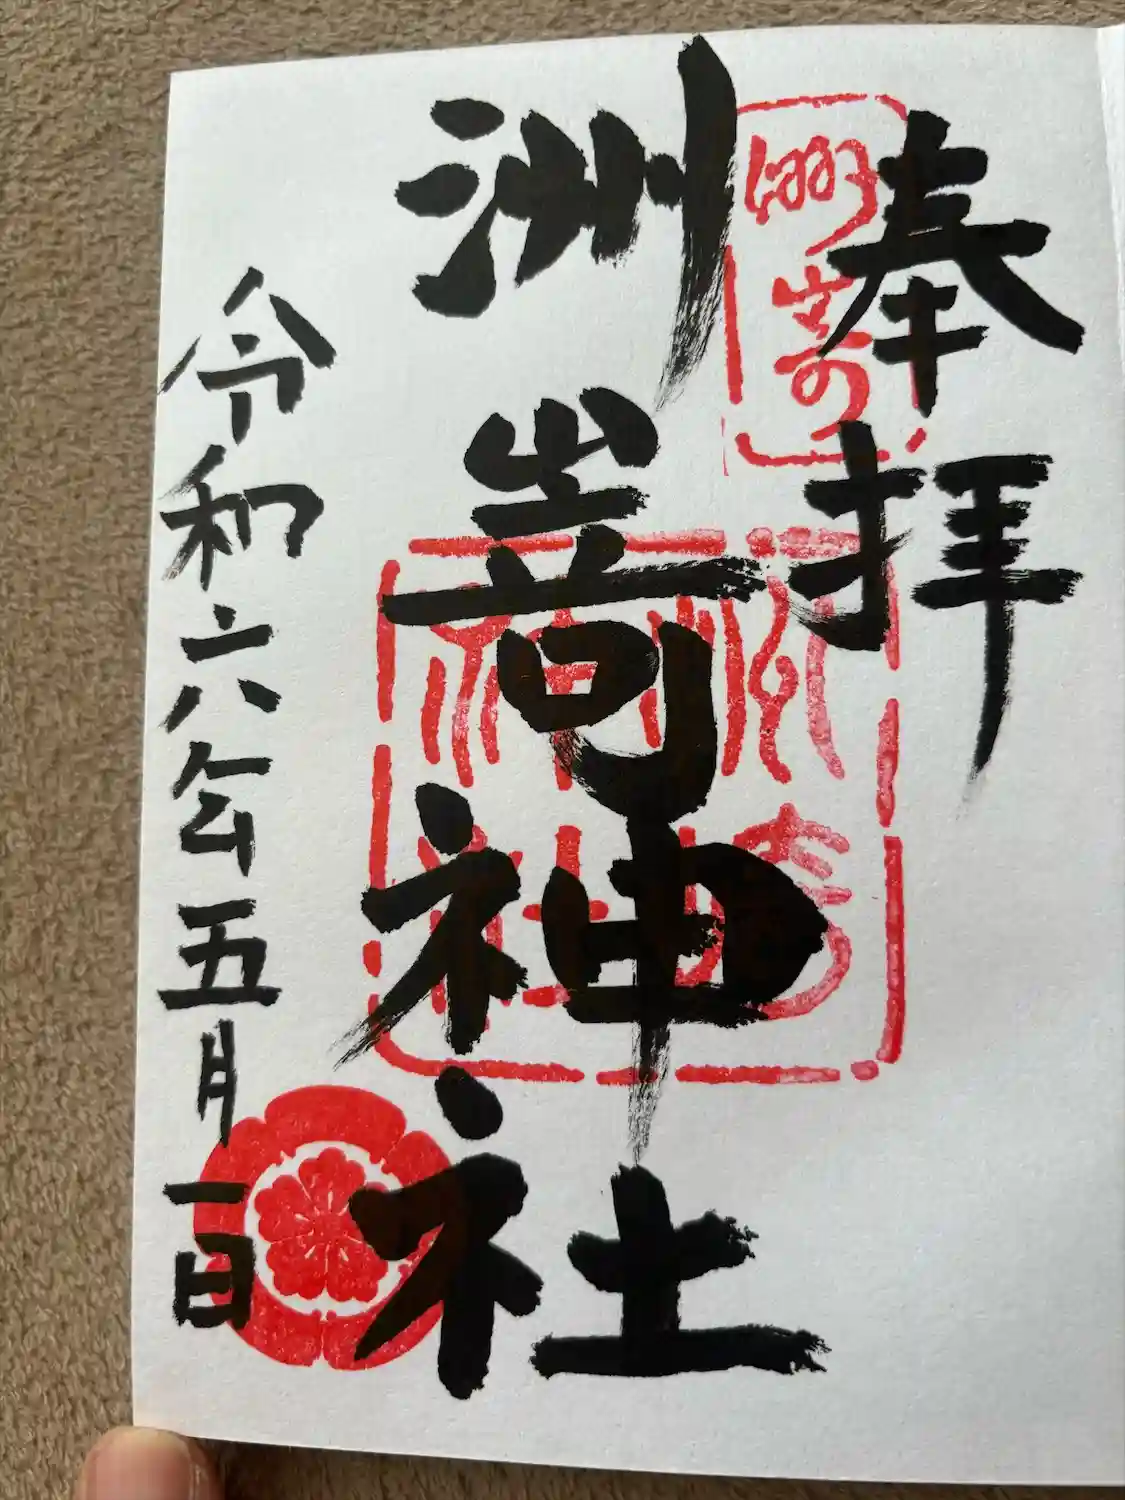 奉拝
洲嵜
洲嵜神社
洲嵜神社
令和六年五月一日